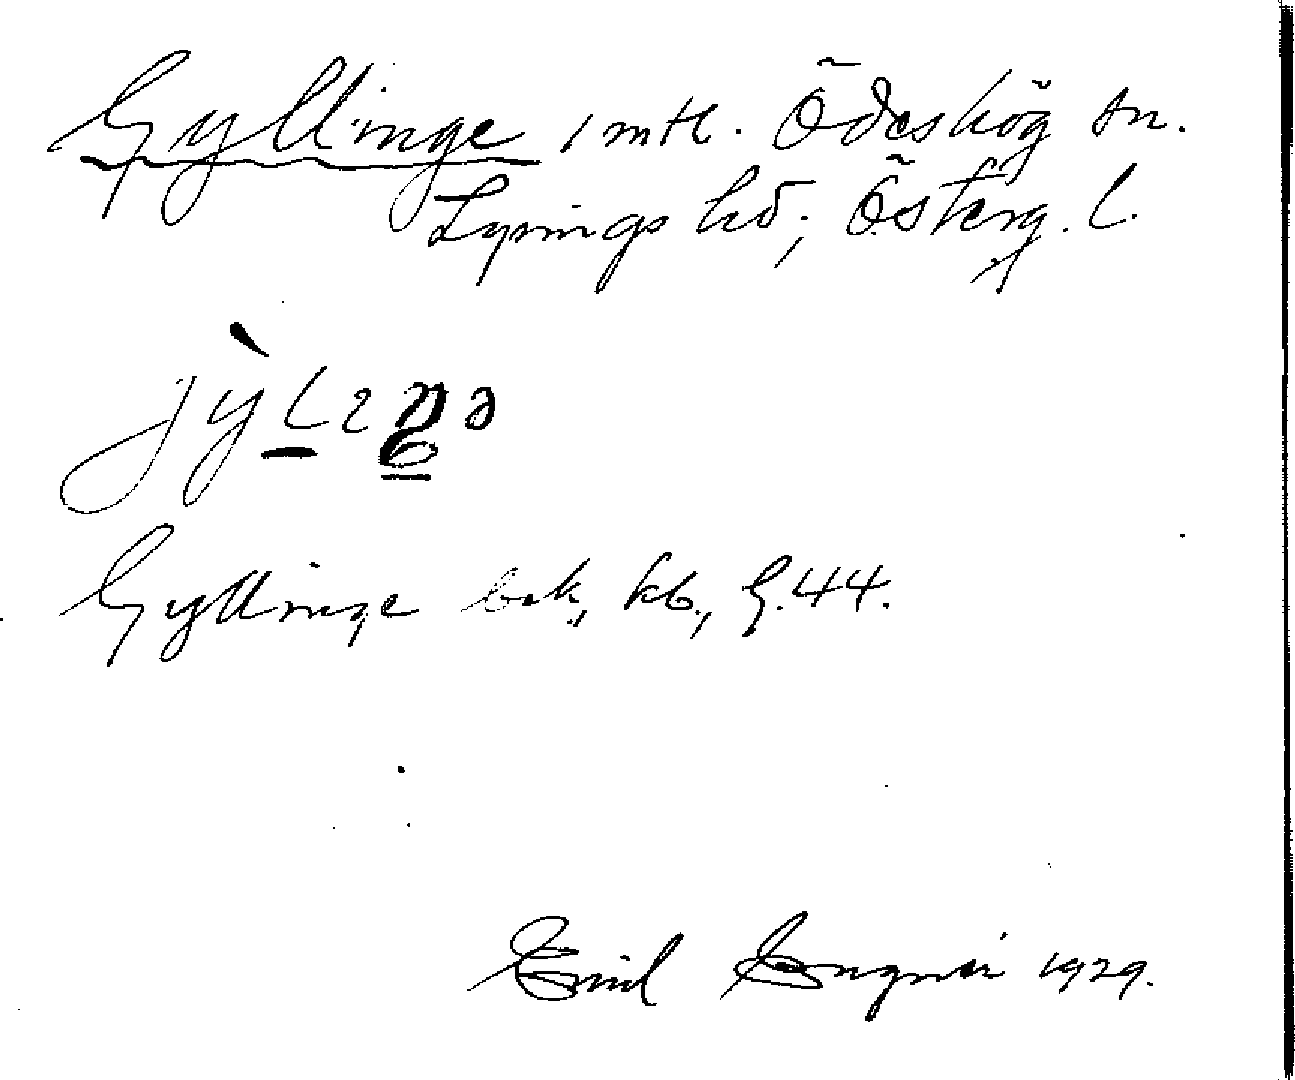 Gyllinge 1 mtl. Ödeshög sn.
Lysings hd; Österg. l.
jỳlıŋə
Gyllinge bok, kb., G.44.
Emil 1929.